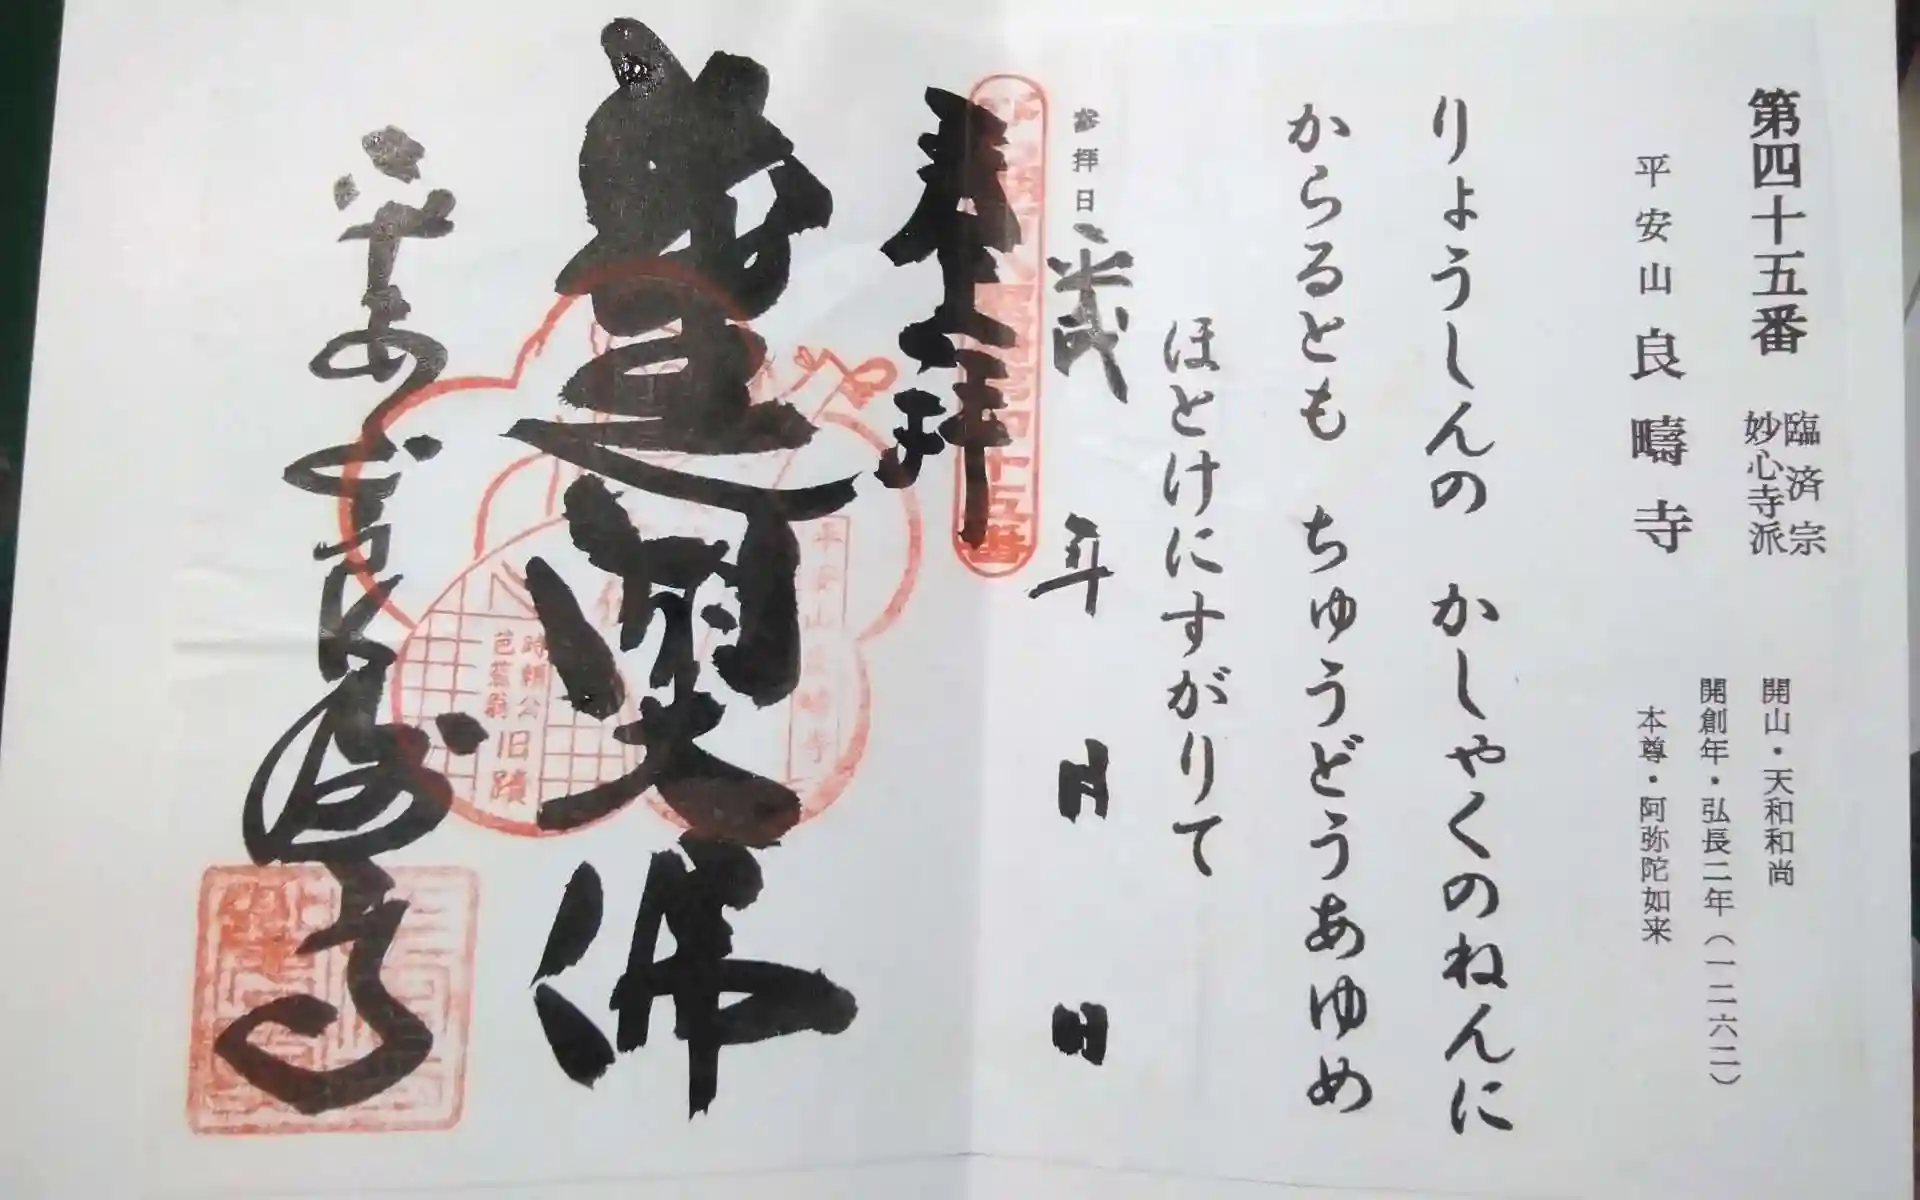 第四十五番 臨済宗
妙心寺派
平安山 良疇寺
開山・天和和尚
開創年・弘長二年(一二六二)
本尊・阿弥陀如来
りょうしんの かしゃくのねんに
からるとも ちゅうどうあゆめ
ほとけにすがりて
参拝日 平成 年 月 日
奉拝
平安山良疇寺
時頼公
芭蕉翁
旧蹟